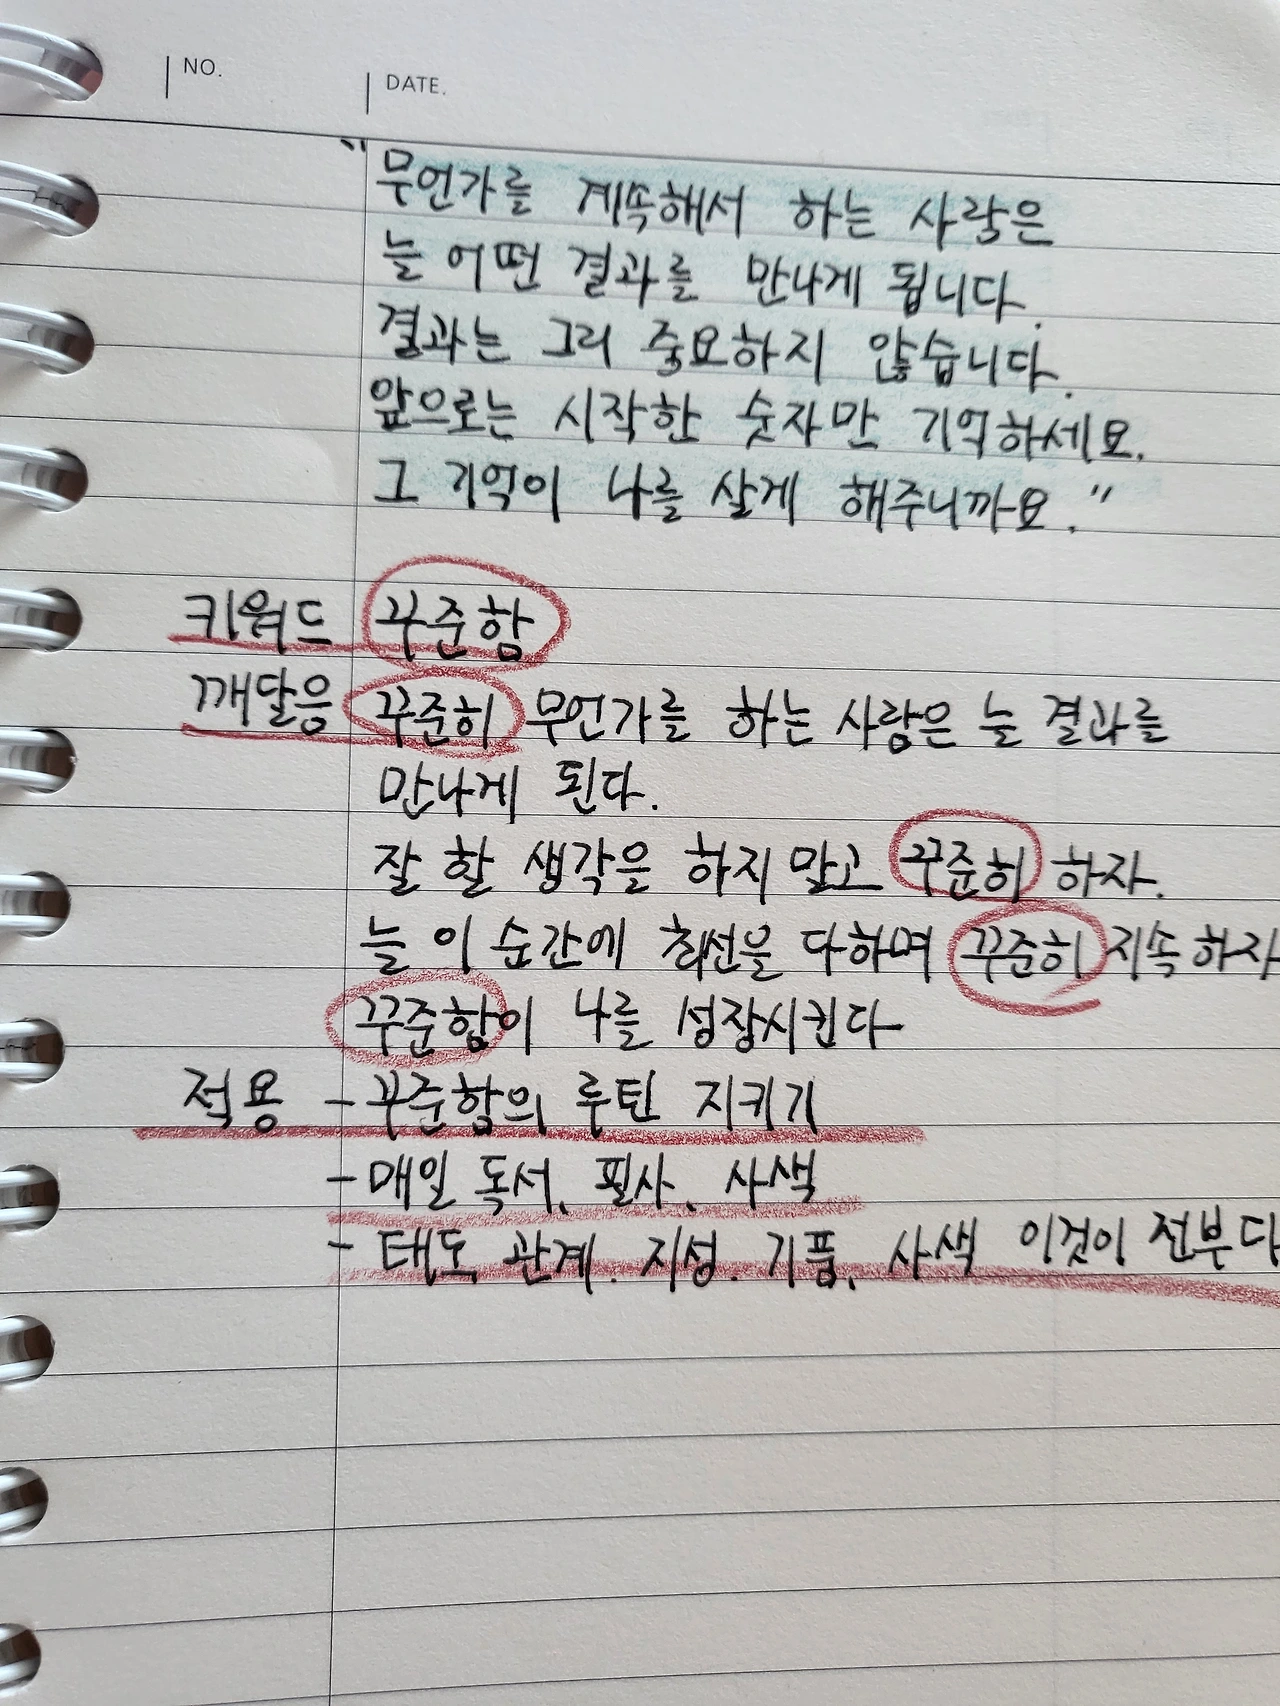 NO. DATE.
"무언가를 계속해서 하는 사람은
늘 어떤 결과를 만나게 됩니다.
결과는 그리 중요하지 않습니다.
앞으로는 시작한 숫자만 기억하세요.
그 기억이 나를 살게 해주니까요."
키워드 꾸준함
깨달음 꾸준히 무언가를 하는 사람은 늘 결과를
만나게 된다.
잘 할 생각을 하지 말고 꾸준히 하자.
늘 이 순간에 최선을 다하며 꾸준히 지속하자
꾸준함이 나를 성장시킨다
적용 - 꾸준함의 루틴 지키기
- 매일 독서, 필사, 사색
- 태도 관계. 지성. 기품, 사색 이것이 전부다